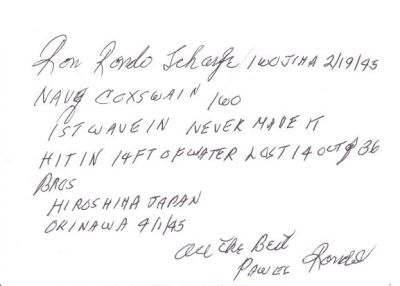 Ron Rondo Scharfe IWO JIMA 2/19/45
NAVY COXSWAIN IWO
1ST WAVE IN NEVER MADE IT
HIT IN 14 FT OF WATER LOST 14 OUT OF 36
BROS
HIROSHIMA JAPAN
OKINAWA 4/1/45
All The Best
Rondo